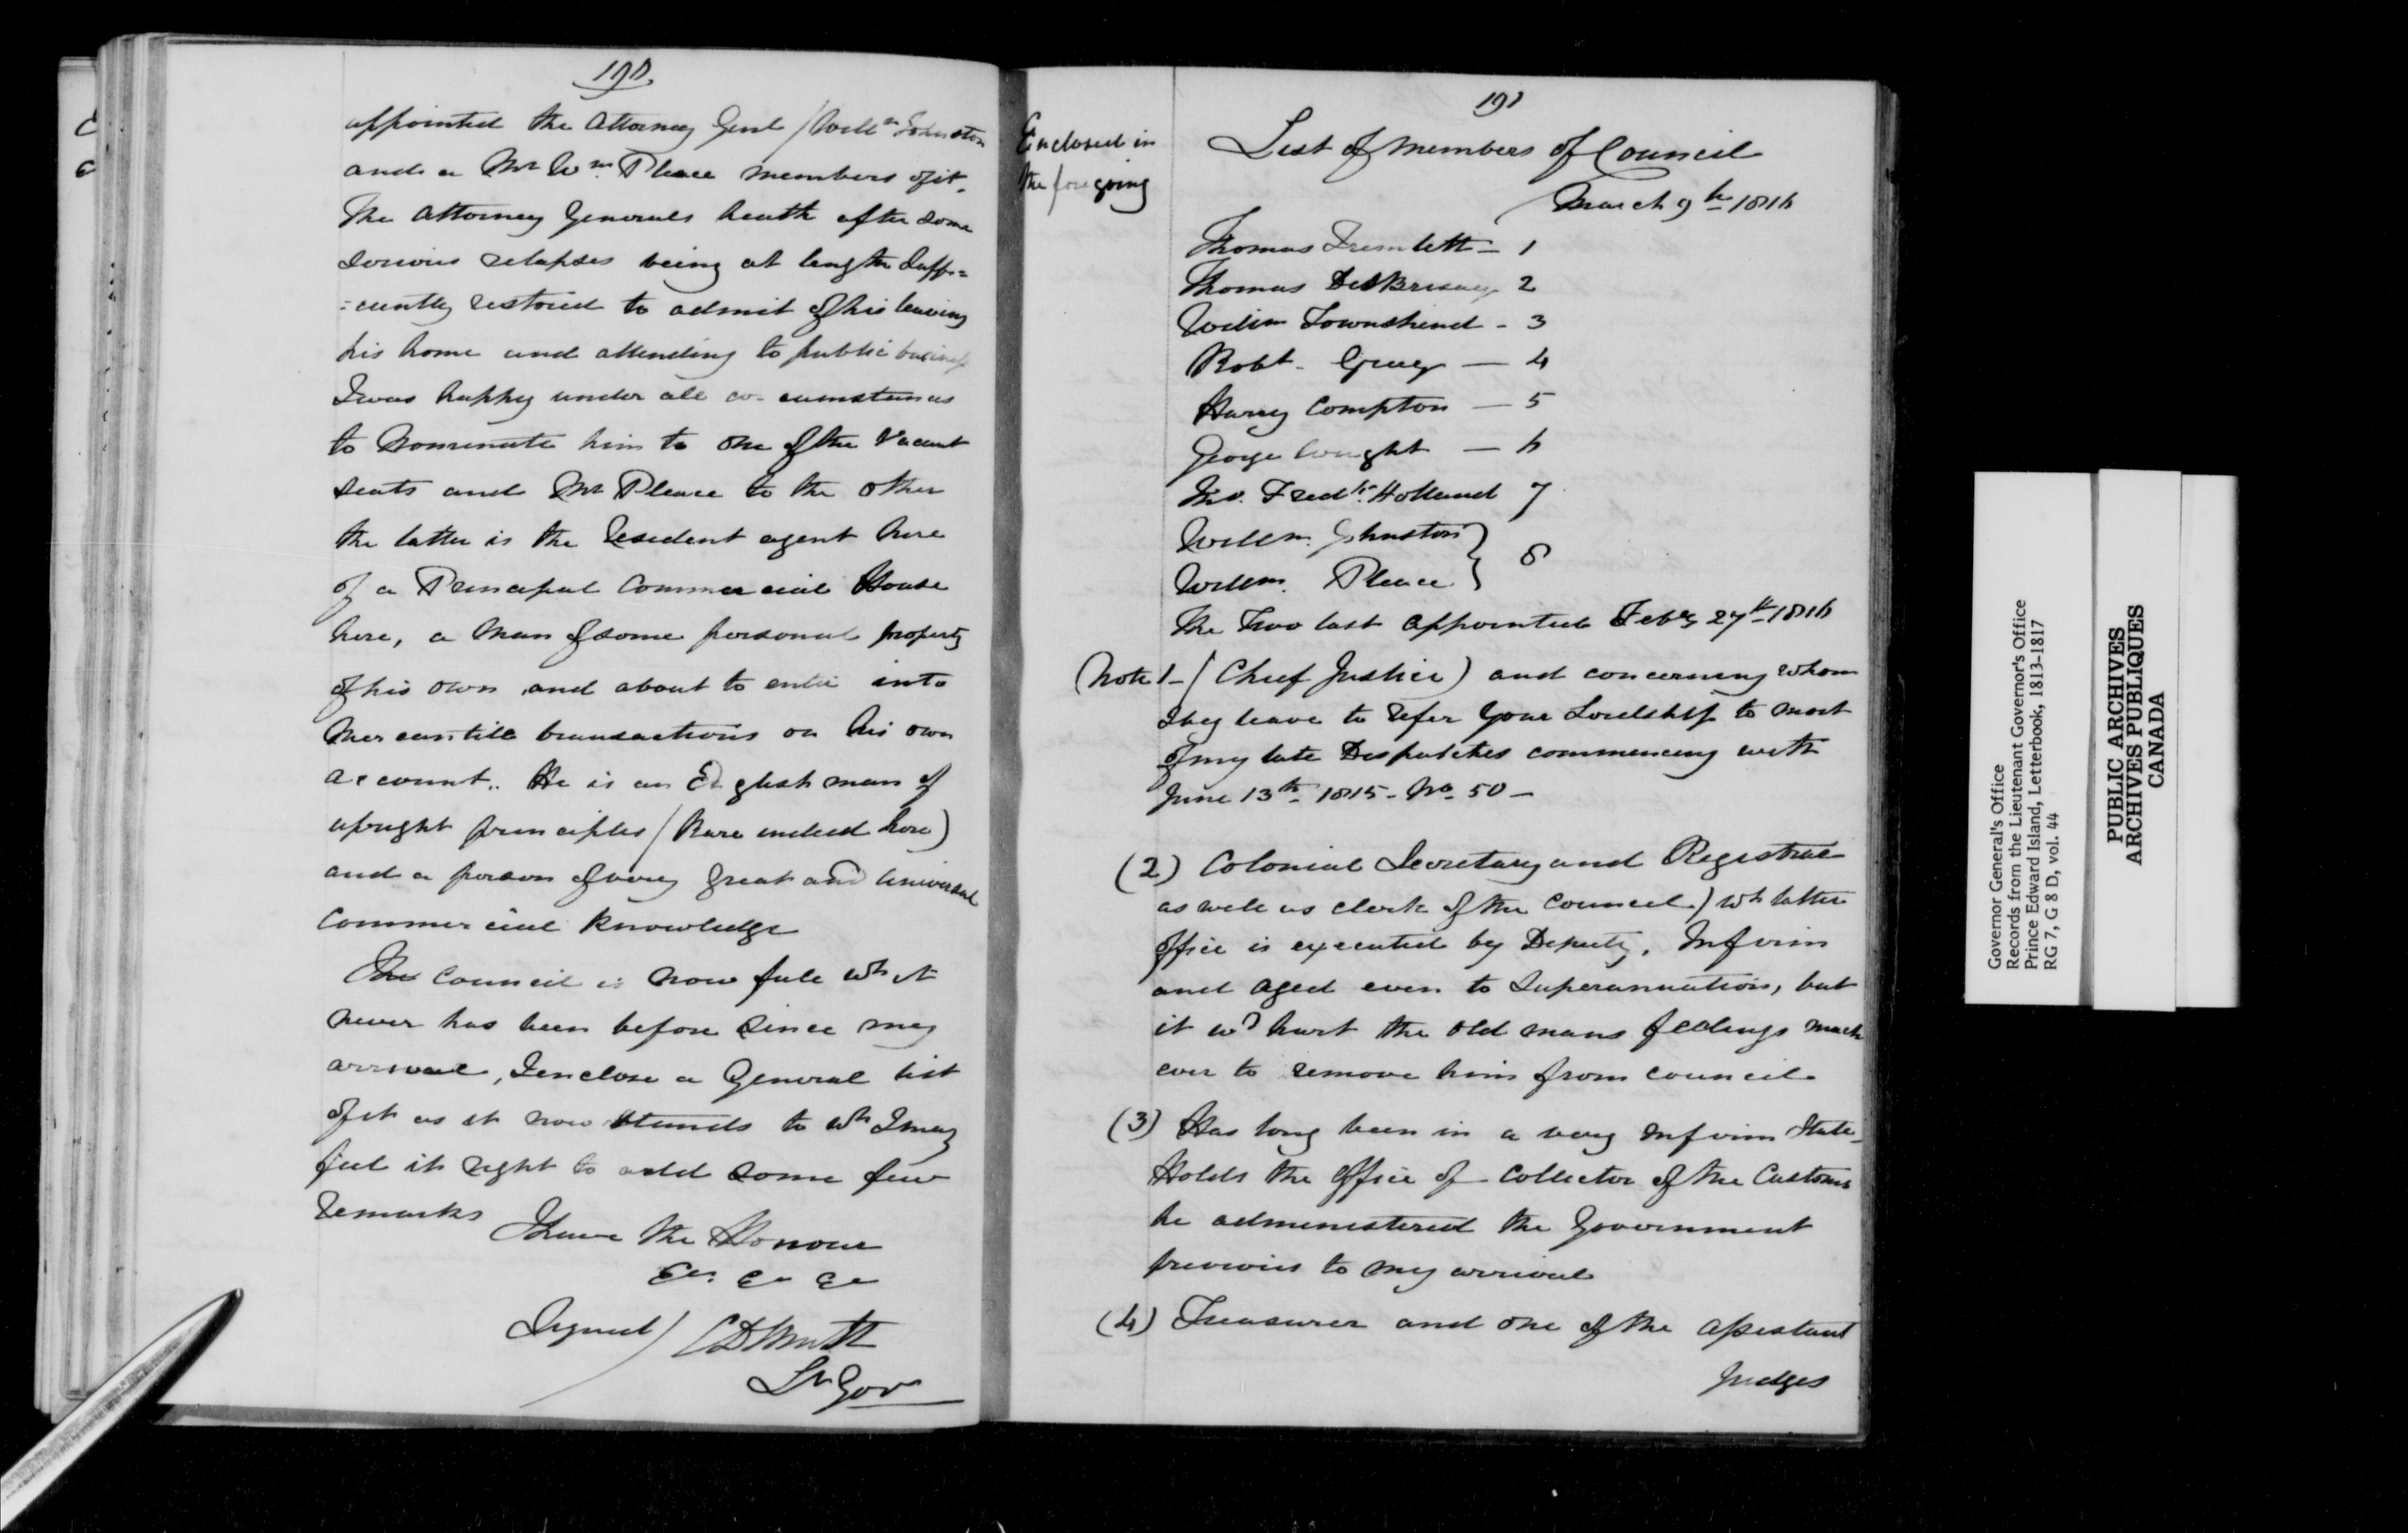 190
appointed the Attorney Genl (Willm Johnston
and a Mr Wm. Pleace members of it.
The Attorney Generals health after some
serious relapses being at length suffi=
=ciently restored to admit of his leaving
his home and attending to public business
I was happy under all circumstances
to nominate him to one of the Vacant
seats and Mr Pleace to the other
the latter is the resident agent here
of a Principal Commercial House
here, a man of some personal property
of his own, and about to enter into
Mercantile transactions on his own
account. He is an English man of
upright principles (Rare indeed here)
and a person of very great and universal
Commercial Knowledge
The Council is now full wh it
never has been before since my
arrival, I enclose a General list
of it as it now stands to wh I may
feel it right to add some few
remarks
I have the Honour
&c. &c &c
Signed) CD Smith
Lt Gov
191
Enclosed in
the foregoing
List of Members of Council
March 9th 1816
Thomas Tremlett - 1
Thomas DesBrisay 2
Willm Townshend - 3
Robt. Gray — 4
Harry Compton — 5
George Wright — 6
Jno. Fredk. Holland 7
Willm. Johnston }
Willm. Pleace } 8
The Two last appointed Feby 27th 1816
(Note 1 - (Chief Justice) and concerning whom
I beg leave to refer Your Lordship to most
of my late Despatches commencing with
June 13th 1815 - No 50 -
(2) Colonial Secretary and Registrar
as well as clerk of the Council) wh latter
office is executed by Deputy. Infirm
and aged even to Superannuation, but
it wd hurt the old mans feelings much
ever to remove him from council
(3) Has long been in a very infirm State -
Holds the office of Collector of the Customs
he administered the Government
previous to my arrival
(4) Treasurer and one of the assistant
Judges
Governor General's Office
Records from the Lieutenant Governor's Office
Prince Edward Island, Letterbook, 1813-1817
RG 7, G 8 D, vol. 44
PUBLIC ARCHIVES
ARCHIVES PUBLIQUES
CANADA